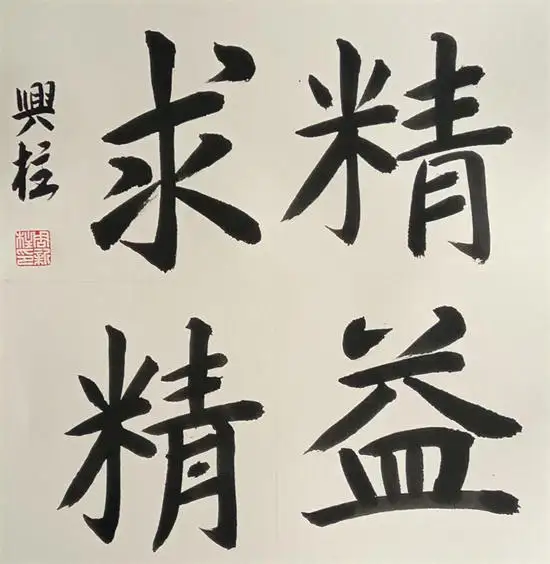 精益
求精
興柱